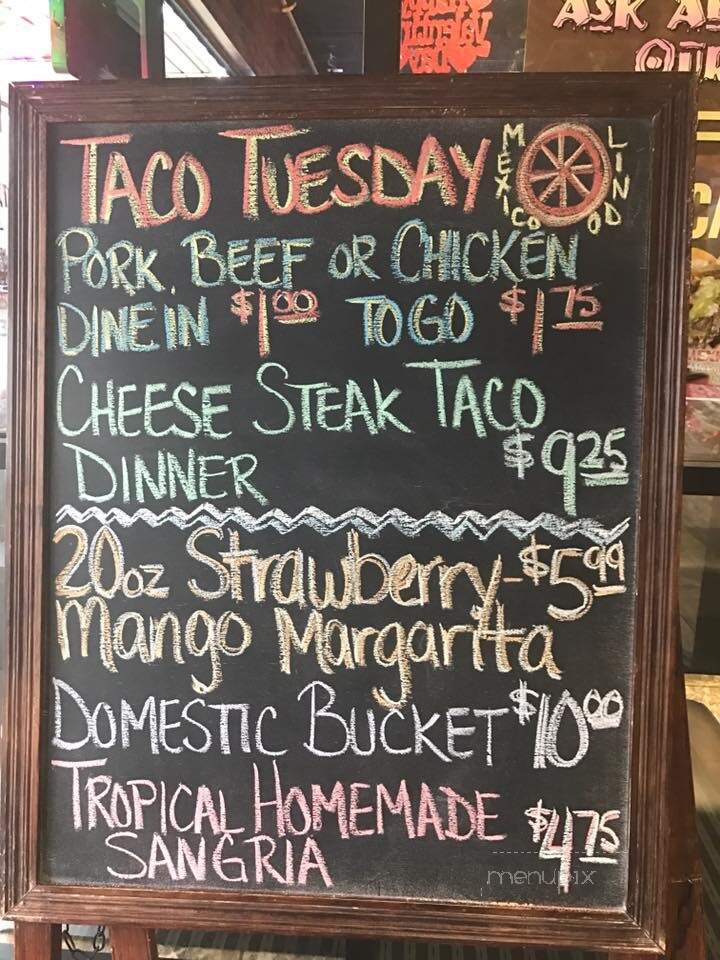 ASK A
OUR
TACO TUESDAY
MEXICO LINDO
PORK, BEEF OR CHICKEN
DINE IN $1.00 TO GO $1.75
CHEESE STEAK TACO
DINNER $9.25
20oz Strawberry- $5.99
Mango Margarita
DOMESTIC BUCKET $10.00
TROPICAL HOMEMADE
SANGRIA $4.75
menupix